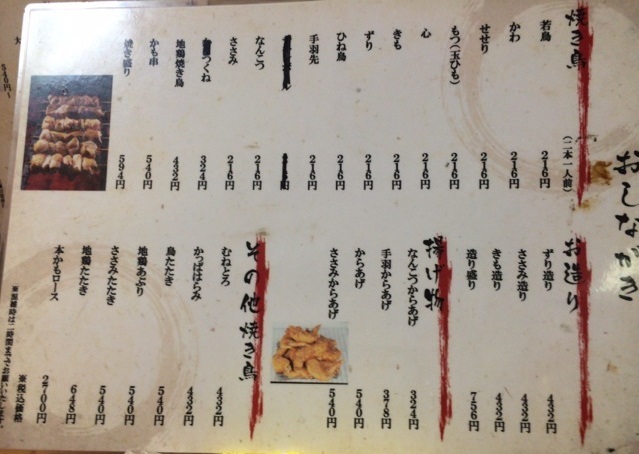 おしながき
焼き鳥
(二本一人前)
若鳥 216円
かわ 216円
せせり 216円
もつ(玉ひも) 216円
心 216円
きも 216円
ずり 216円
ひね鳥 216円
手羽先 216円
なんこつ 216円
ささみ 216円
つくね 324円
地鶏焼き鳥 432円
かも串 540円
焼き盛り 594円
お造り
ずり造り 432円
ささみ造り 432円
きも造り 432円
造り盛り 756円
揚げ物
なんこつからあげ 324円
手羽からあげ 378円
からあげ 540円
ささみからあげ 540円
その他焼き鳥
むねとろ 432円
かっぱはらみ 432円
鳥たたき 540円
地鶏あぶり 540円
ささみたたき 540円
地鶏たたき 648円
本かもロース 2700円
※税込価格
540円~